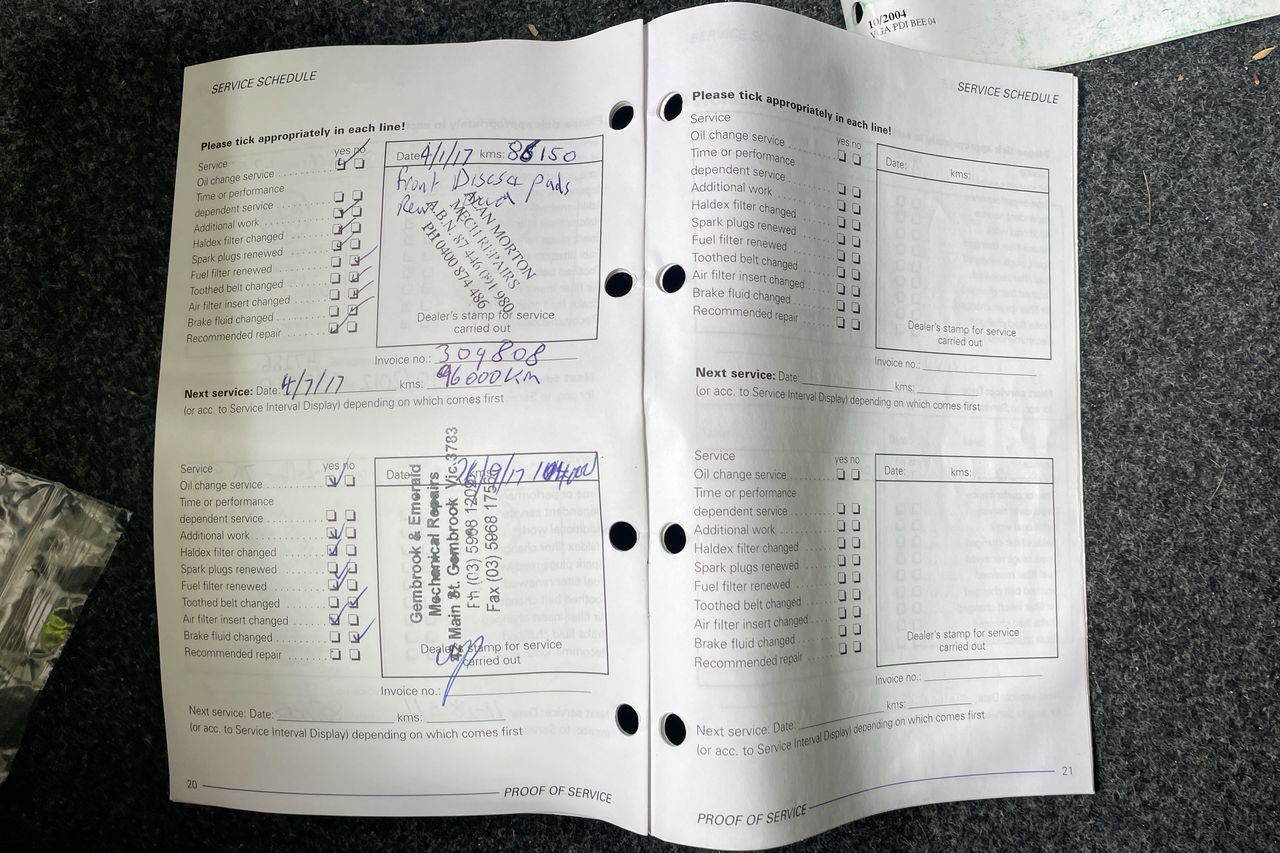 10/2004
VGA PDI BEE 04
SERVICE SCHEDULE
Please tick appropriately in each line!
yes no
Service
Oil change service
Time or performance
dependent service
Additional work
Haldex filter changed
Spark plugs renewed
Fuel filter renewed
Toothed belt changed
Air filter insert changed
Brake fluid changed
Recommended repair
Date: 4/1/17 kms: 150
front Discs & pads
Rear
DEAN MORTON
MECH REPAIRS
A.B.N. 87 446 091 980
PH 0400 874 486
Dealer's stamp for service
carried out
Invoice no.: 309808
Next service: Date: 4/7/17 kms: 96000km
(or acc. to Service Interval Display) depending on which comes first
Service
yes no
Oil change service
Time or performance
dependent service
Additional work
Haldex filter changed
Spark plugs renewed
Fuel filter renewed
Toothed belt changed
Air filter insert changed
Brake fluid changed
Recommended repair
Date: 26/9/17 kms:
Gembrook & Emerald
Mechanical Repairs
Main St. Gembrook Vic 3783
Ph (03) 5968
Fax (03) 5968
Dealer's stamp for service
carried out
Invoice no.:
Next service: Date: kms:
(or acc. to Service Interval Display) depending on which comes first
20
PROOF OF SERVICE
SERVICE SCHEDULE
Please tick appropriately in each line!
Service
yes no
Oil change service
Time or performance
dependent service
Additional work
Haldex filter changed
Spark plugs renewed
Fuel filter renewed
Toothed belt changed
Air filter insert changed
Brake fluid changed
Recommended repair
Date: kms:
Dealer's stamp for service
carried out
Invoice no.:
Next service: Date: kms:
(or acc. to Service Interval Display) depending on which comes first
Service
yes no
Oil change service
Time or performance
dependent service
Additional work
Haldex filter changed
Spark plugs renewed
Fuel filter renewed
Toothed belt changed
Air filter insert changed
Brake fluid changed
Recommended repair
Date: kms:
Dealer's stamp for service
carried out
Invoice no.:
Next service: Date: kms:
(or acc. to Service Interval Display) depending on which comes first
PROOF OF SERVICE
21